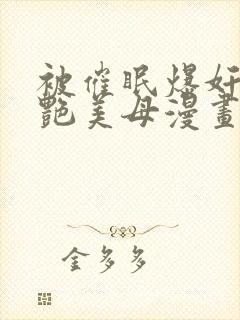 被催眠爆奸
艷美母漫畫
金多多